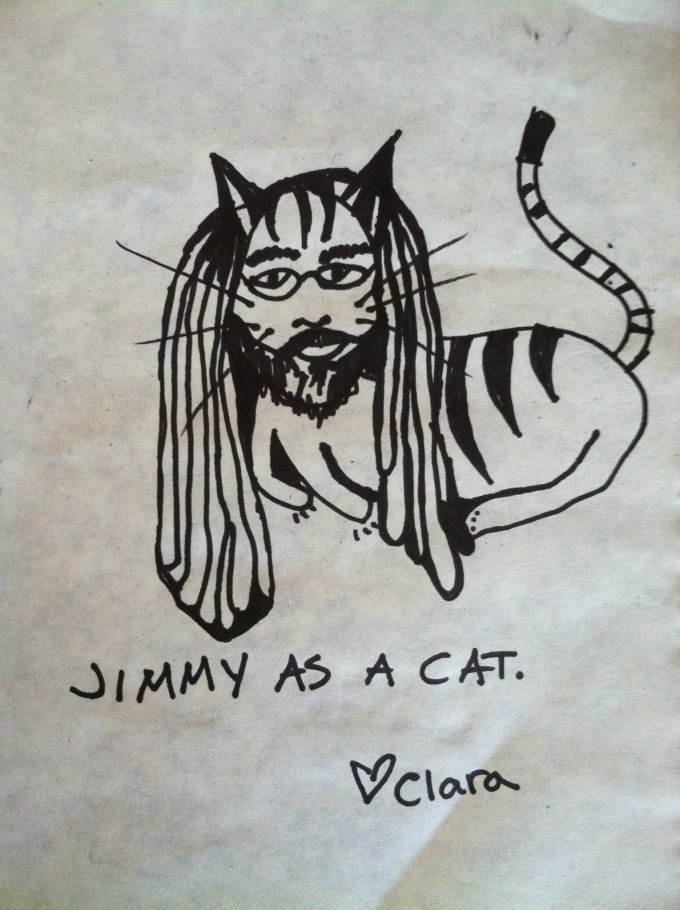 JIMMY AS A CAT.
♡Clara